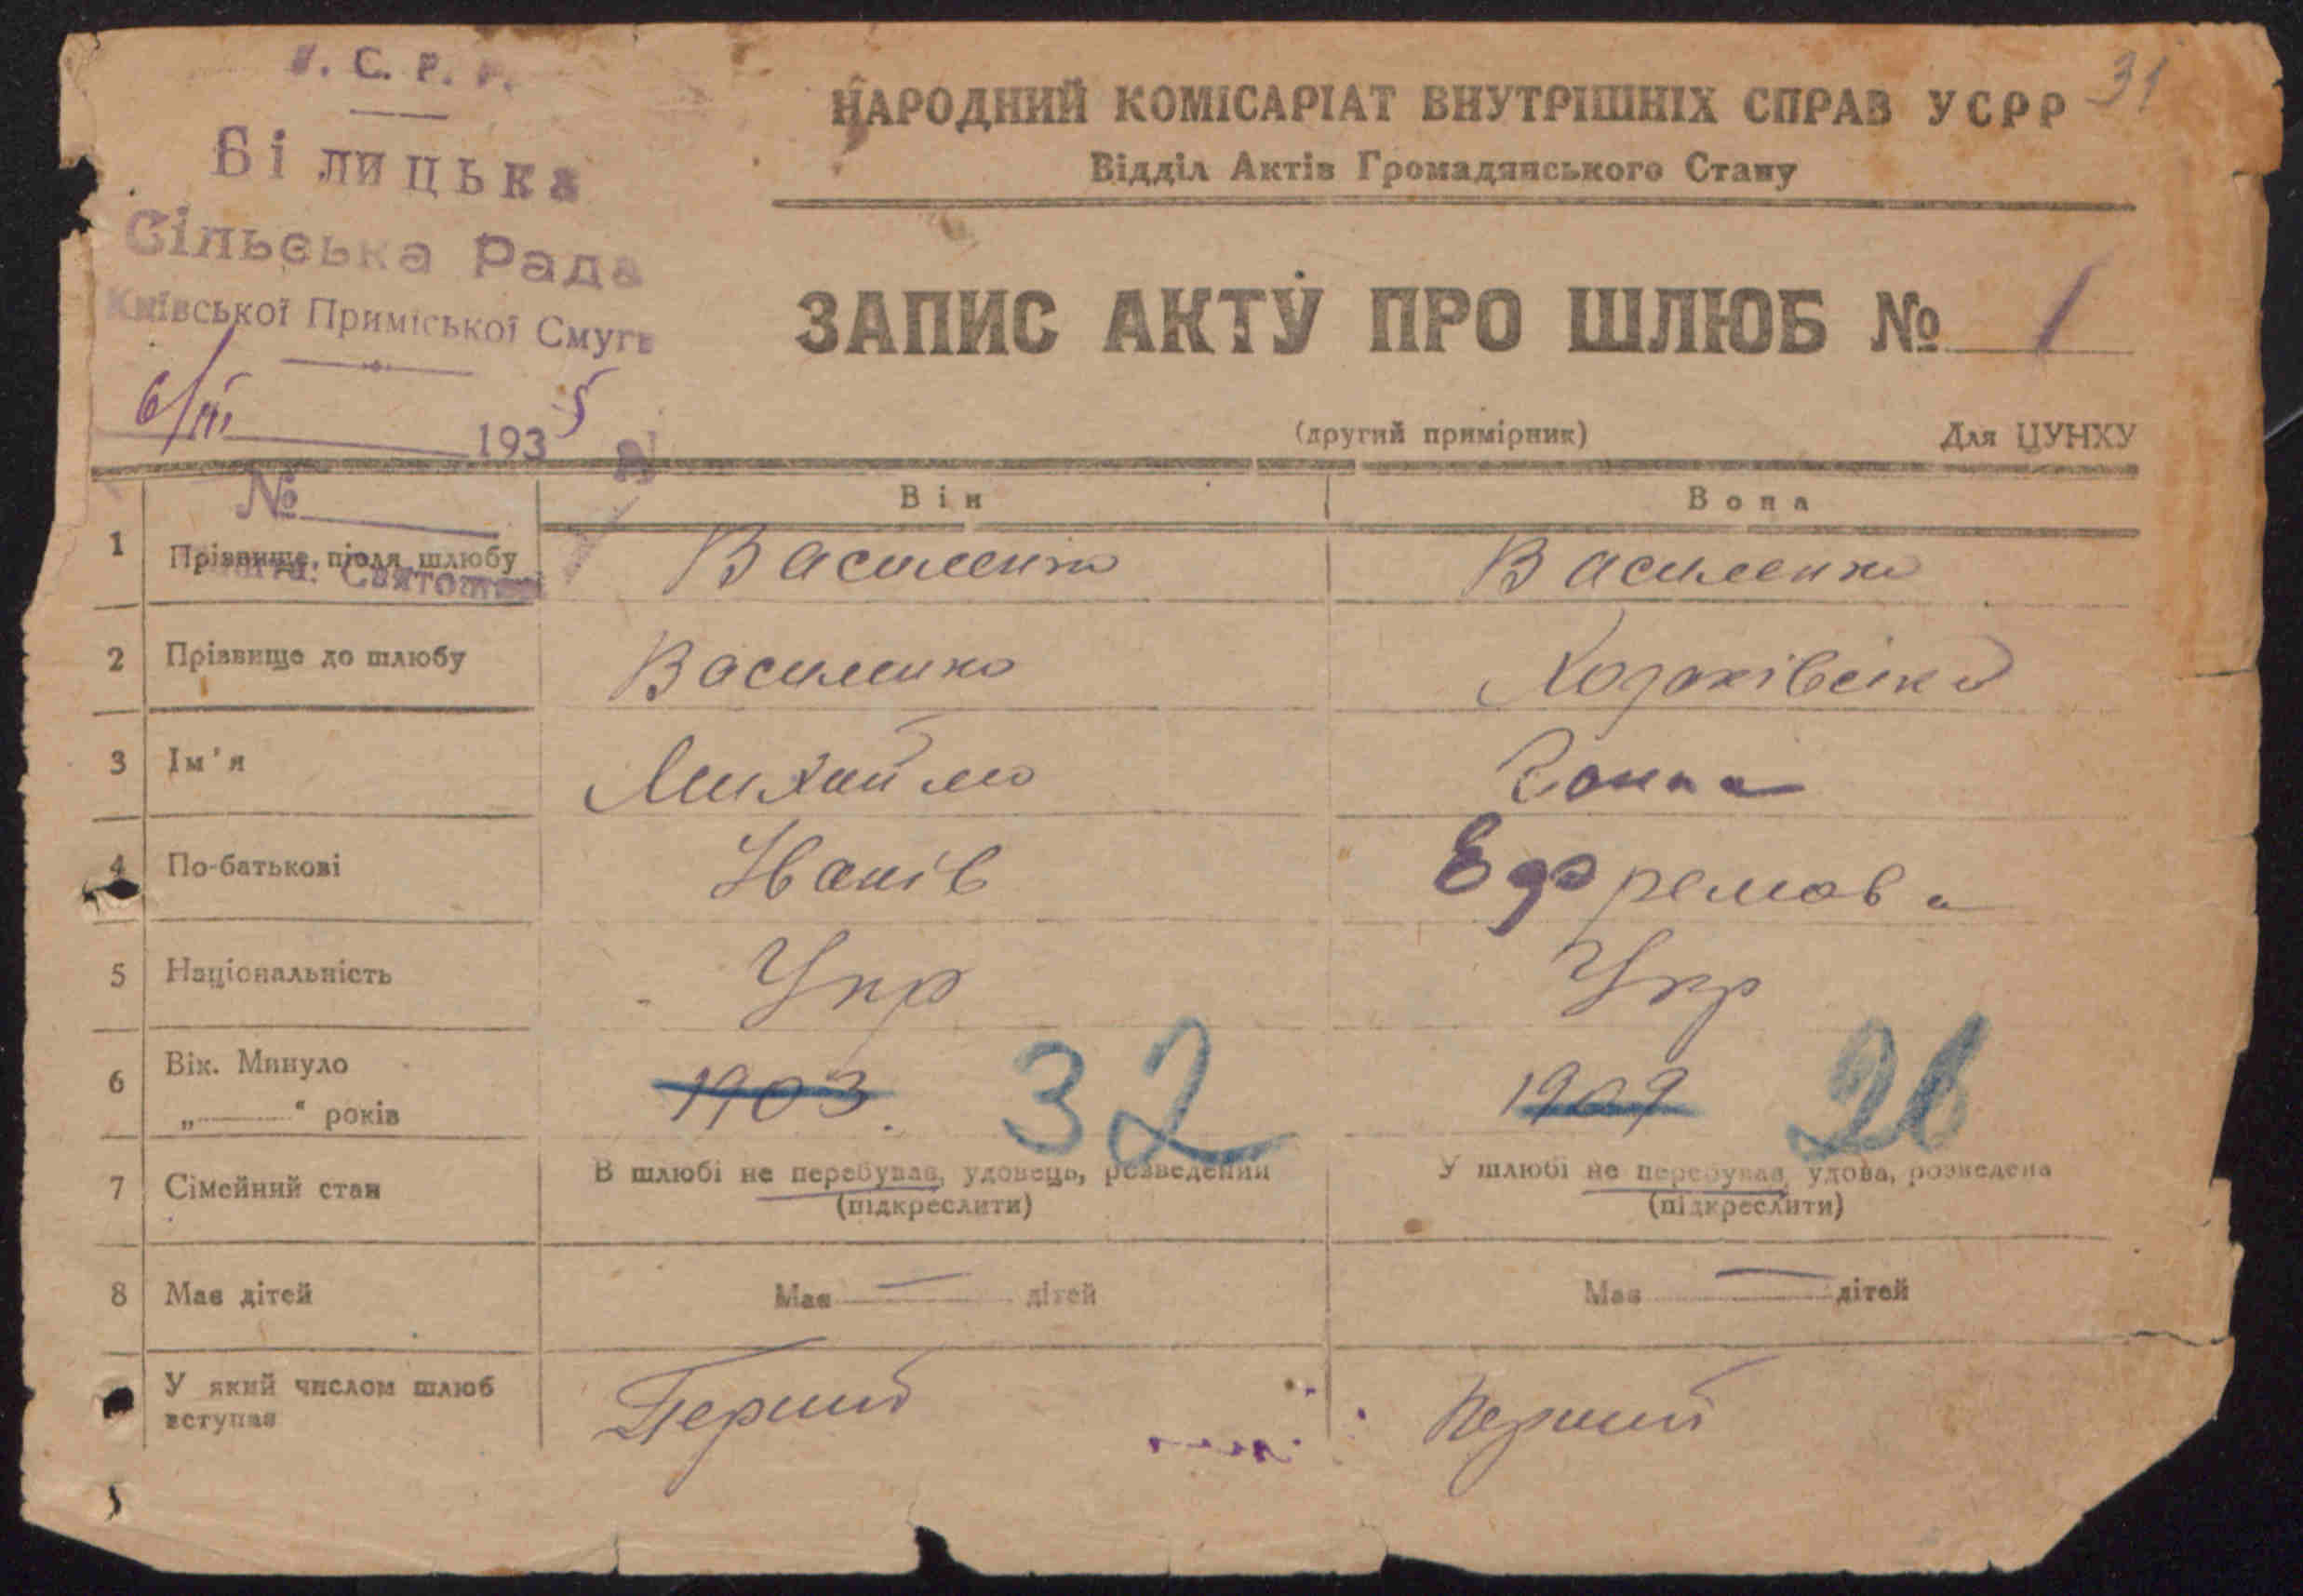 У. С. Р. Р.
Білицька
Сільська Рада
Київської Приміської Смуги
6/III 1935
№
Святошин
31
НАРОДНИЙ КОМІСАРІАТ ВНУТРІШНІХ СПРАВ УСРР
Відділ Актів Громадянського Стану
ЗАПИС АКТУ ПРО ШЛЮБ № 1
(другий примірник) Для ЦУНХУ
Він Вона
1 Прізвище після шлюбу Василенко Василенко
2 Прізвище до шлюбу Василенко Ходаківська
3 Ім'я Михайло Ганна
4 По-батькові Іванів Ефремова
5 Національність Укр Укр
6 Вік. Минуло „ “ років 1903. 32 1909 26
7 Сімейний стан В шлюбі не перебував, удовець, розведений У шлюбі не перебував, удова, розведена
(підкреслити) (підкреслити)
8 Має дітей Має — дітей Має — дітей
У який числом шлюб Перший Перший
вступав